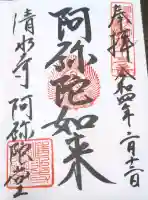 奉拝 令和四年二月十二日
阿弥陀如来
清水寺 阿弥陀堂